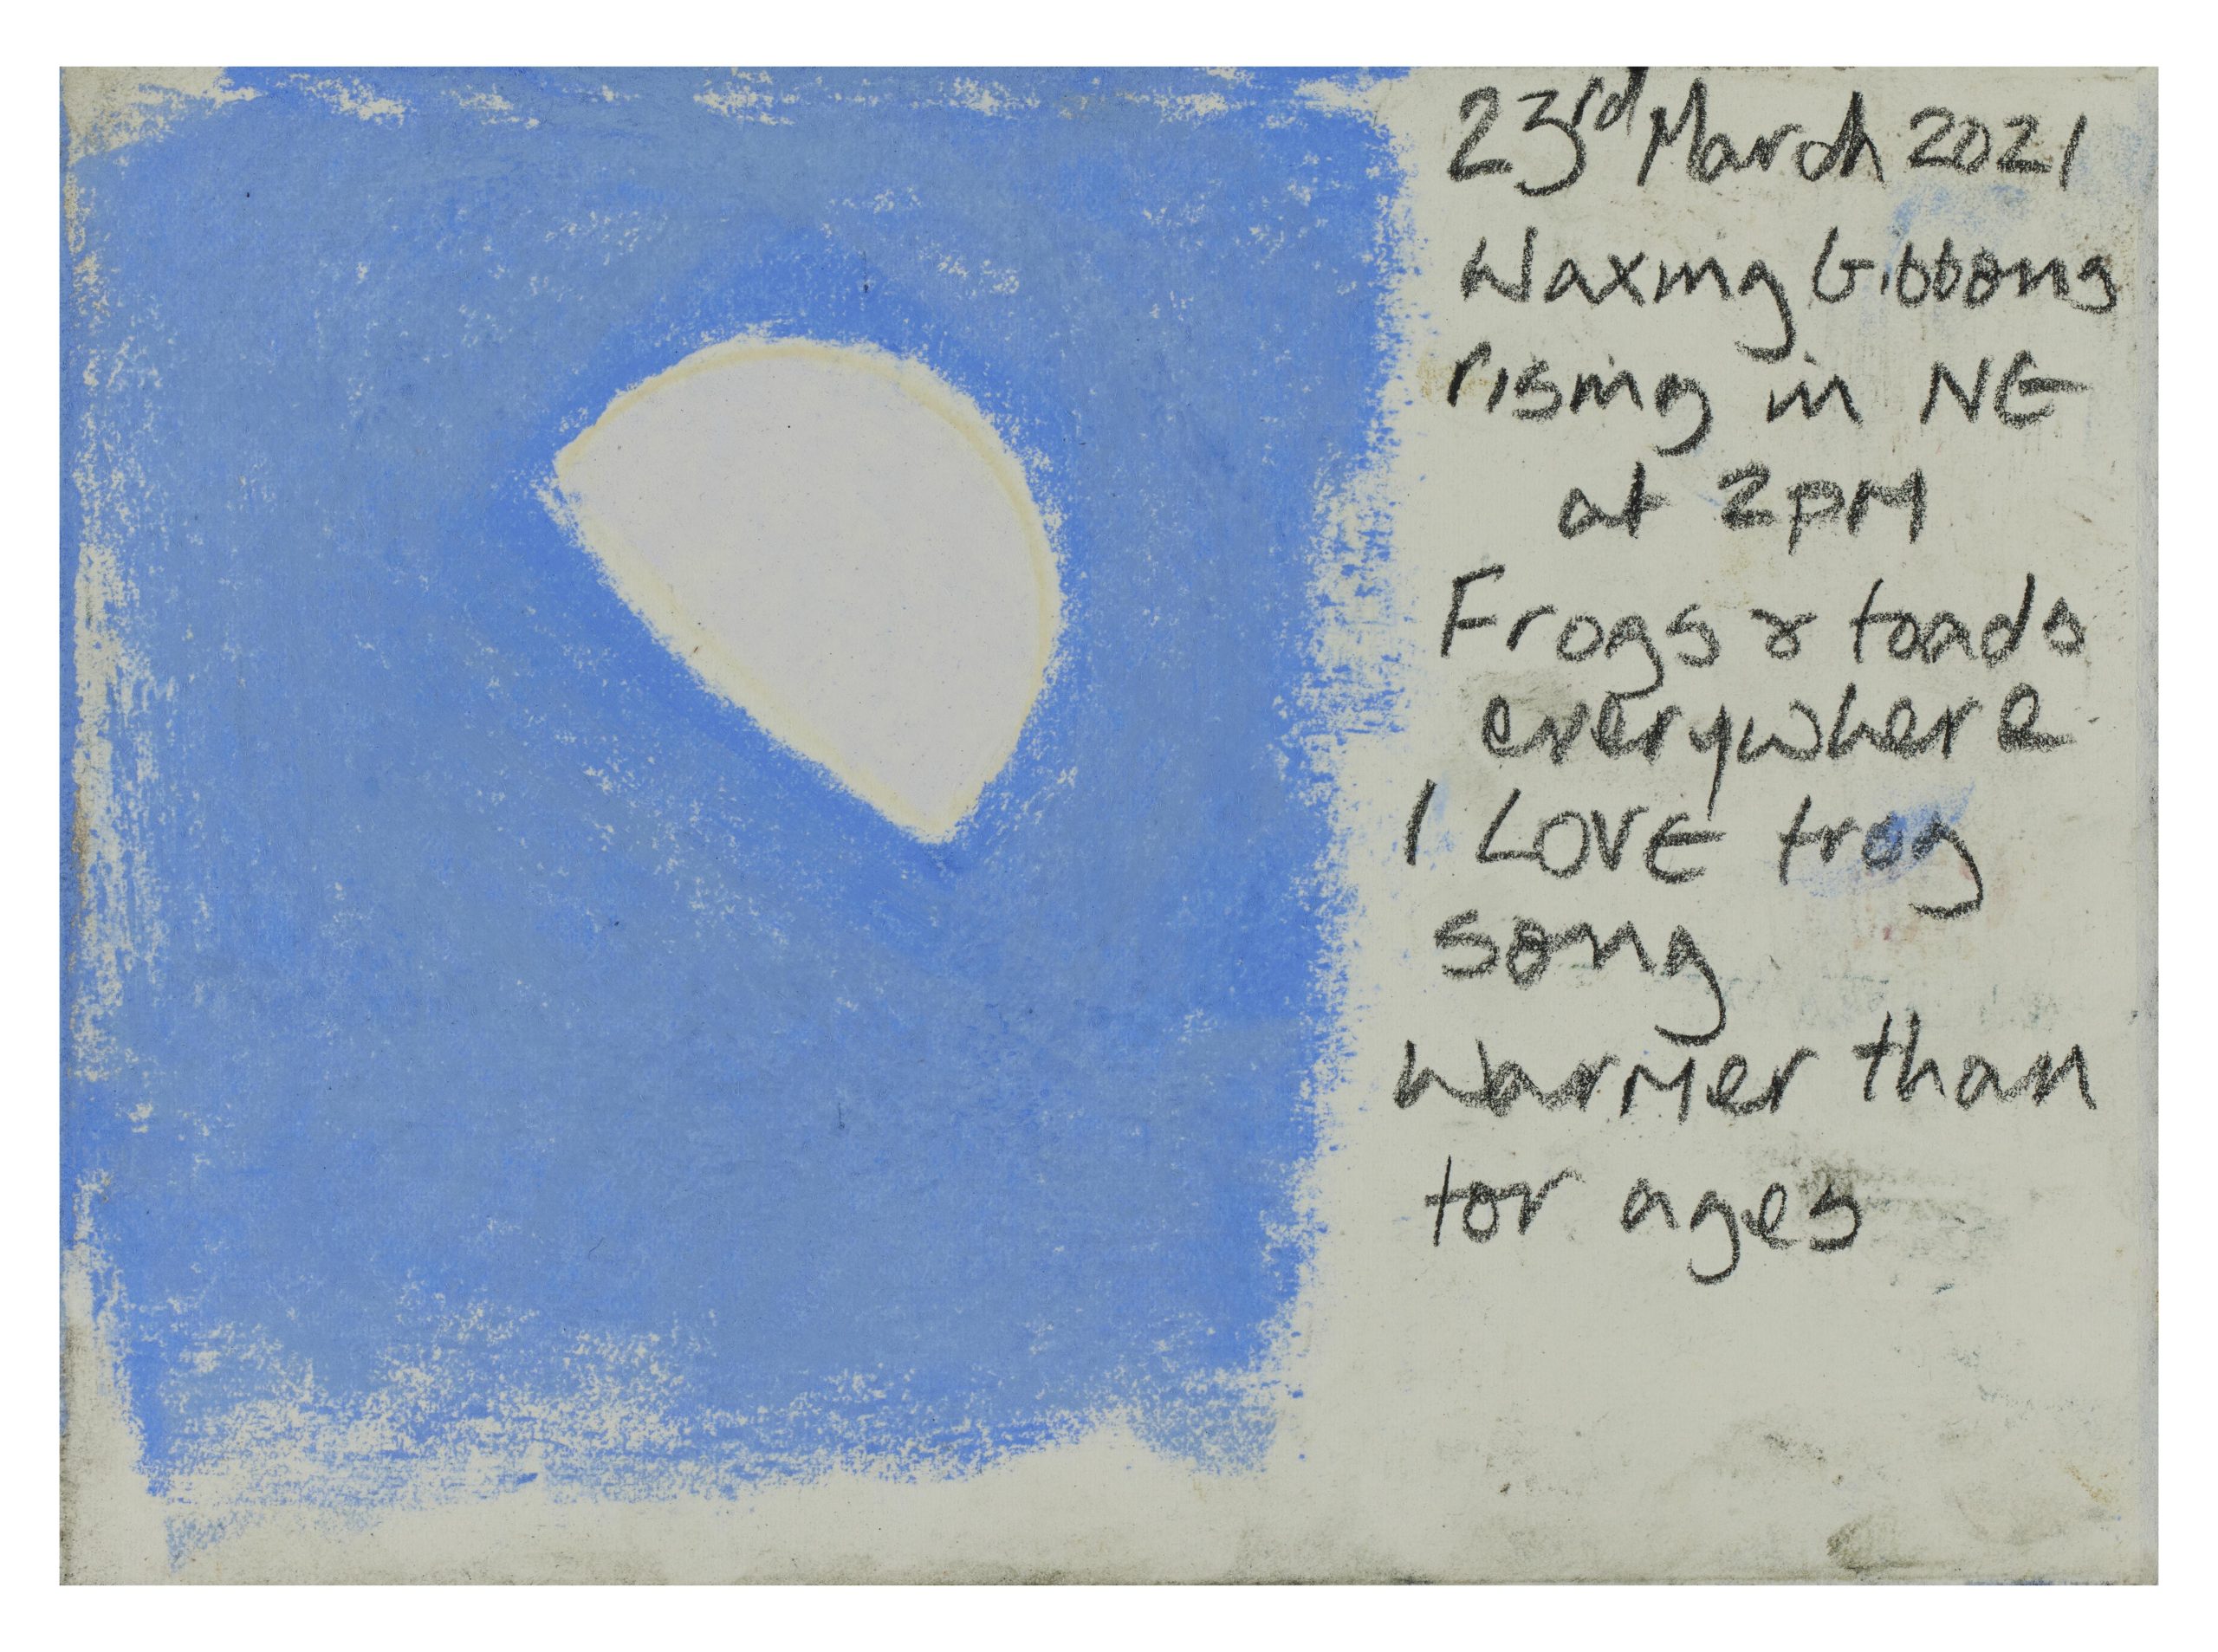 23rd March 2021
Waxing Gibbons
rising in NE
at 2PM
Frogs & toads
everywhere
I LOVE frog
song
warmer than
for ages